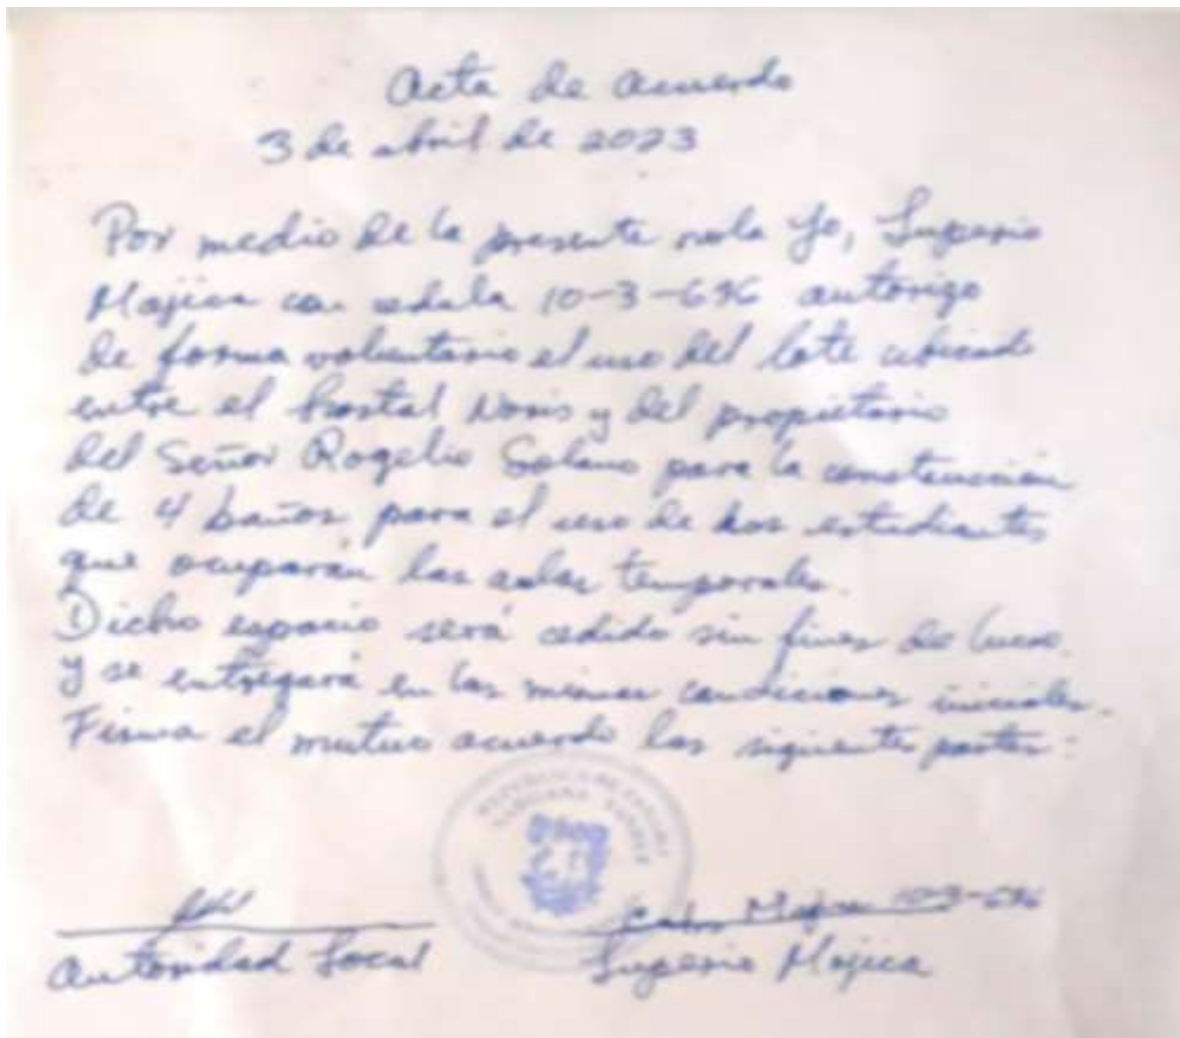 Acta de Acuerdo
3 de abril de 2023
Por medio de la presente nota Yo, Luperio
Mojica con cedula 10-3-696 autorizo
de forma voluntario el uso del lote ubicado
entre el hostal Noris y del propietario
del Señor Rogelio Solano para la construcción
de 4 baños para el uso de los estudiantes
que ocuparán las aulas temporales.
Dicho espacio será cedido sin fines de lucro.
y se entregará en las mismas condiciones iniciales.
Firma el mutuo acuerdo las siguientes partes:
REPÚBLICA DE PANAMÁ
Mojica 10-3-696
Autoridad Local
Luperio Mojica